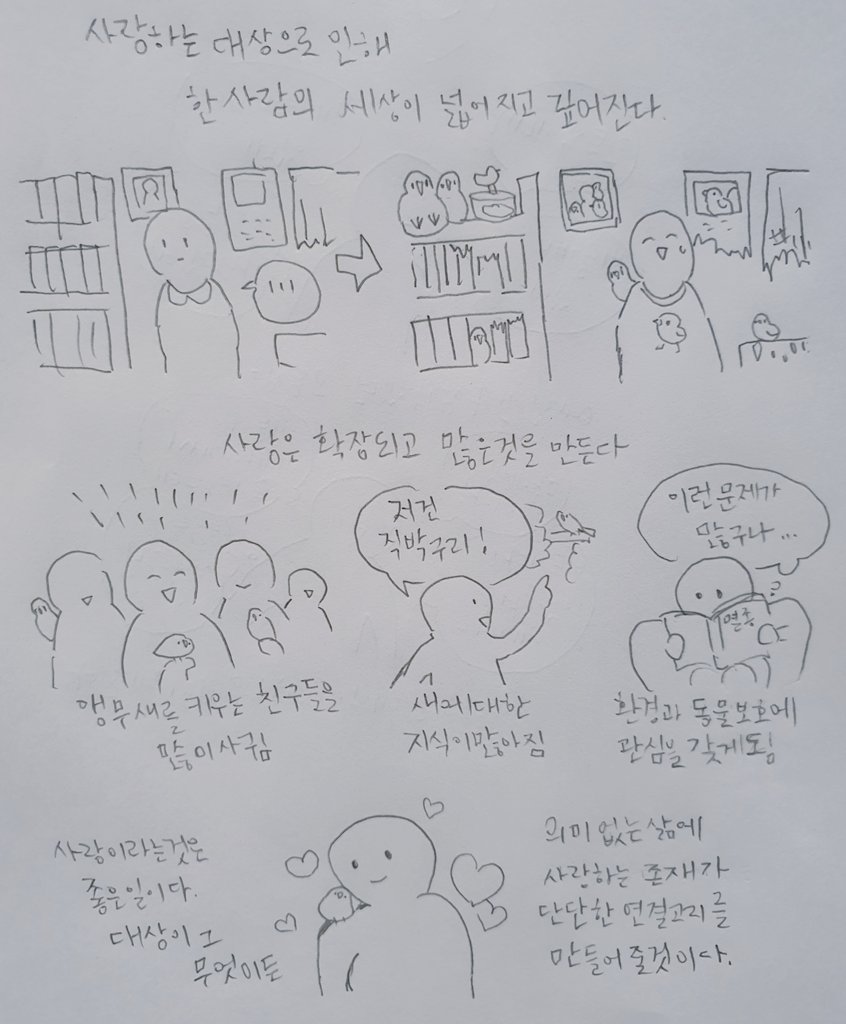 사랑하는 대상으로 인해
한 사람의 세상이 넓어지고 깊어진다.
사랑은 확장되고 많은것를 만든다
저건
직박구리!
이런 문제가
많구나...
멸종
앵무새를 키우는 친구들을
많이 사귐
새에대한
지식이많아짐
환경과 동물보호에
관심을 갖게됨
사랑이라는것은
좋은일이다.
대상이 그
무엇이든
의미 없는 삶에
사랑하는 존재가
단단한 연결고리를
만들어 줄것이다.